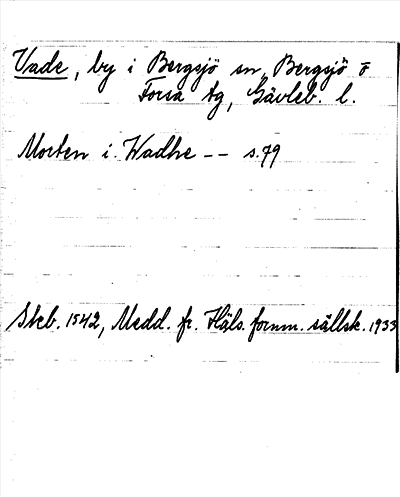 Vade, by i Bergsjö sn, Bergsjö o
Forsa tg, Gävleb. l.
Morten i Wadhe -- s.79
Skb. 1542, Medd. fr. Häls. fornm. sällsk. 1933